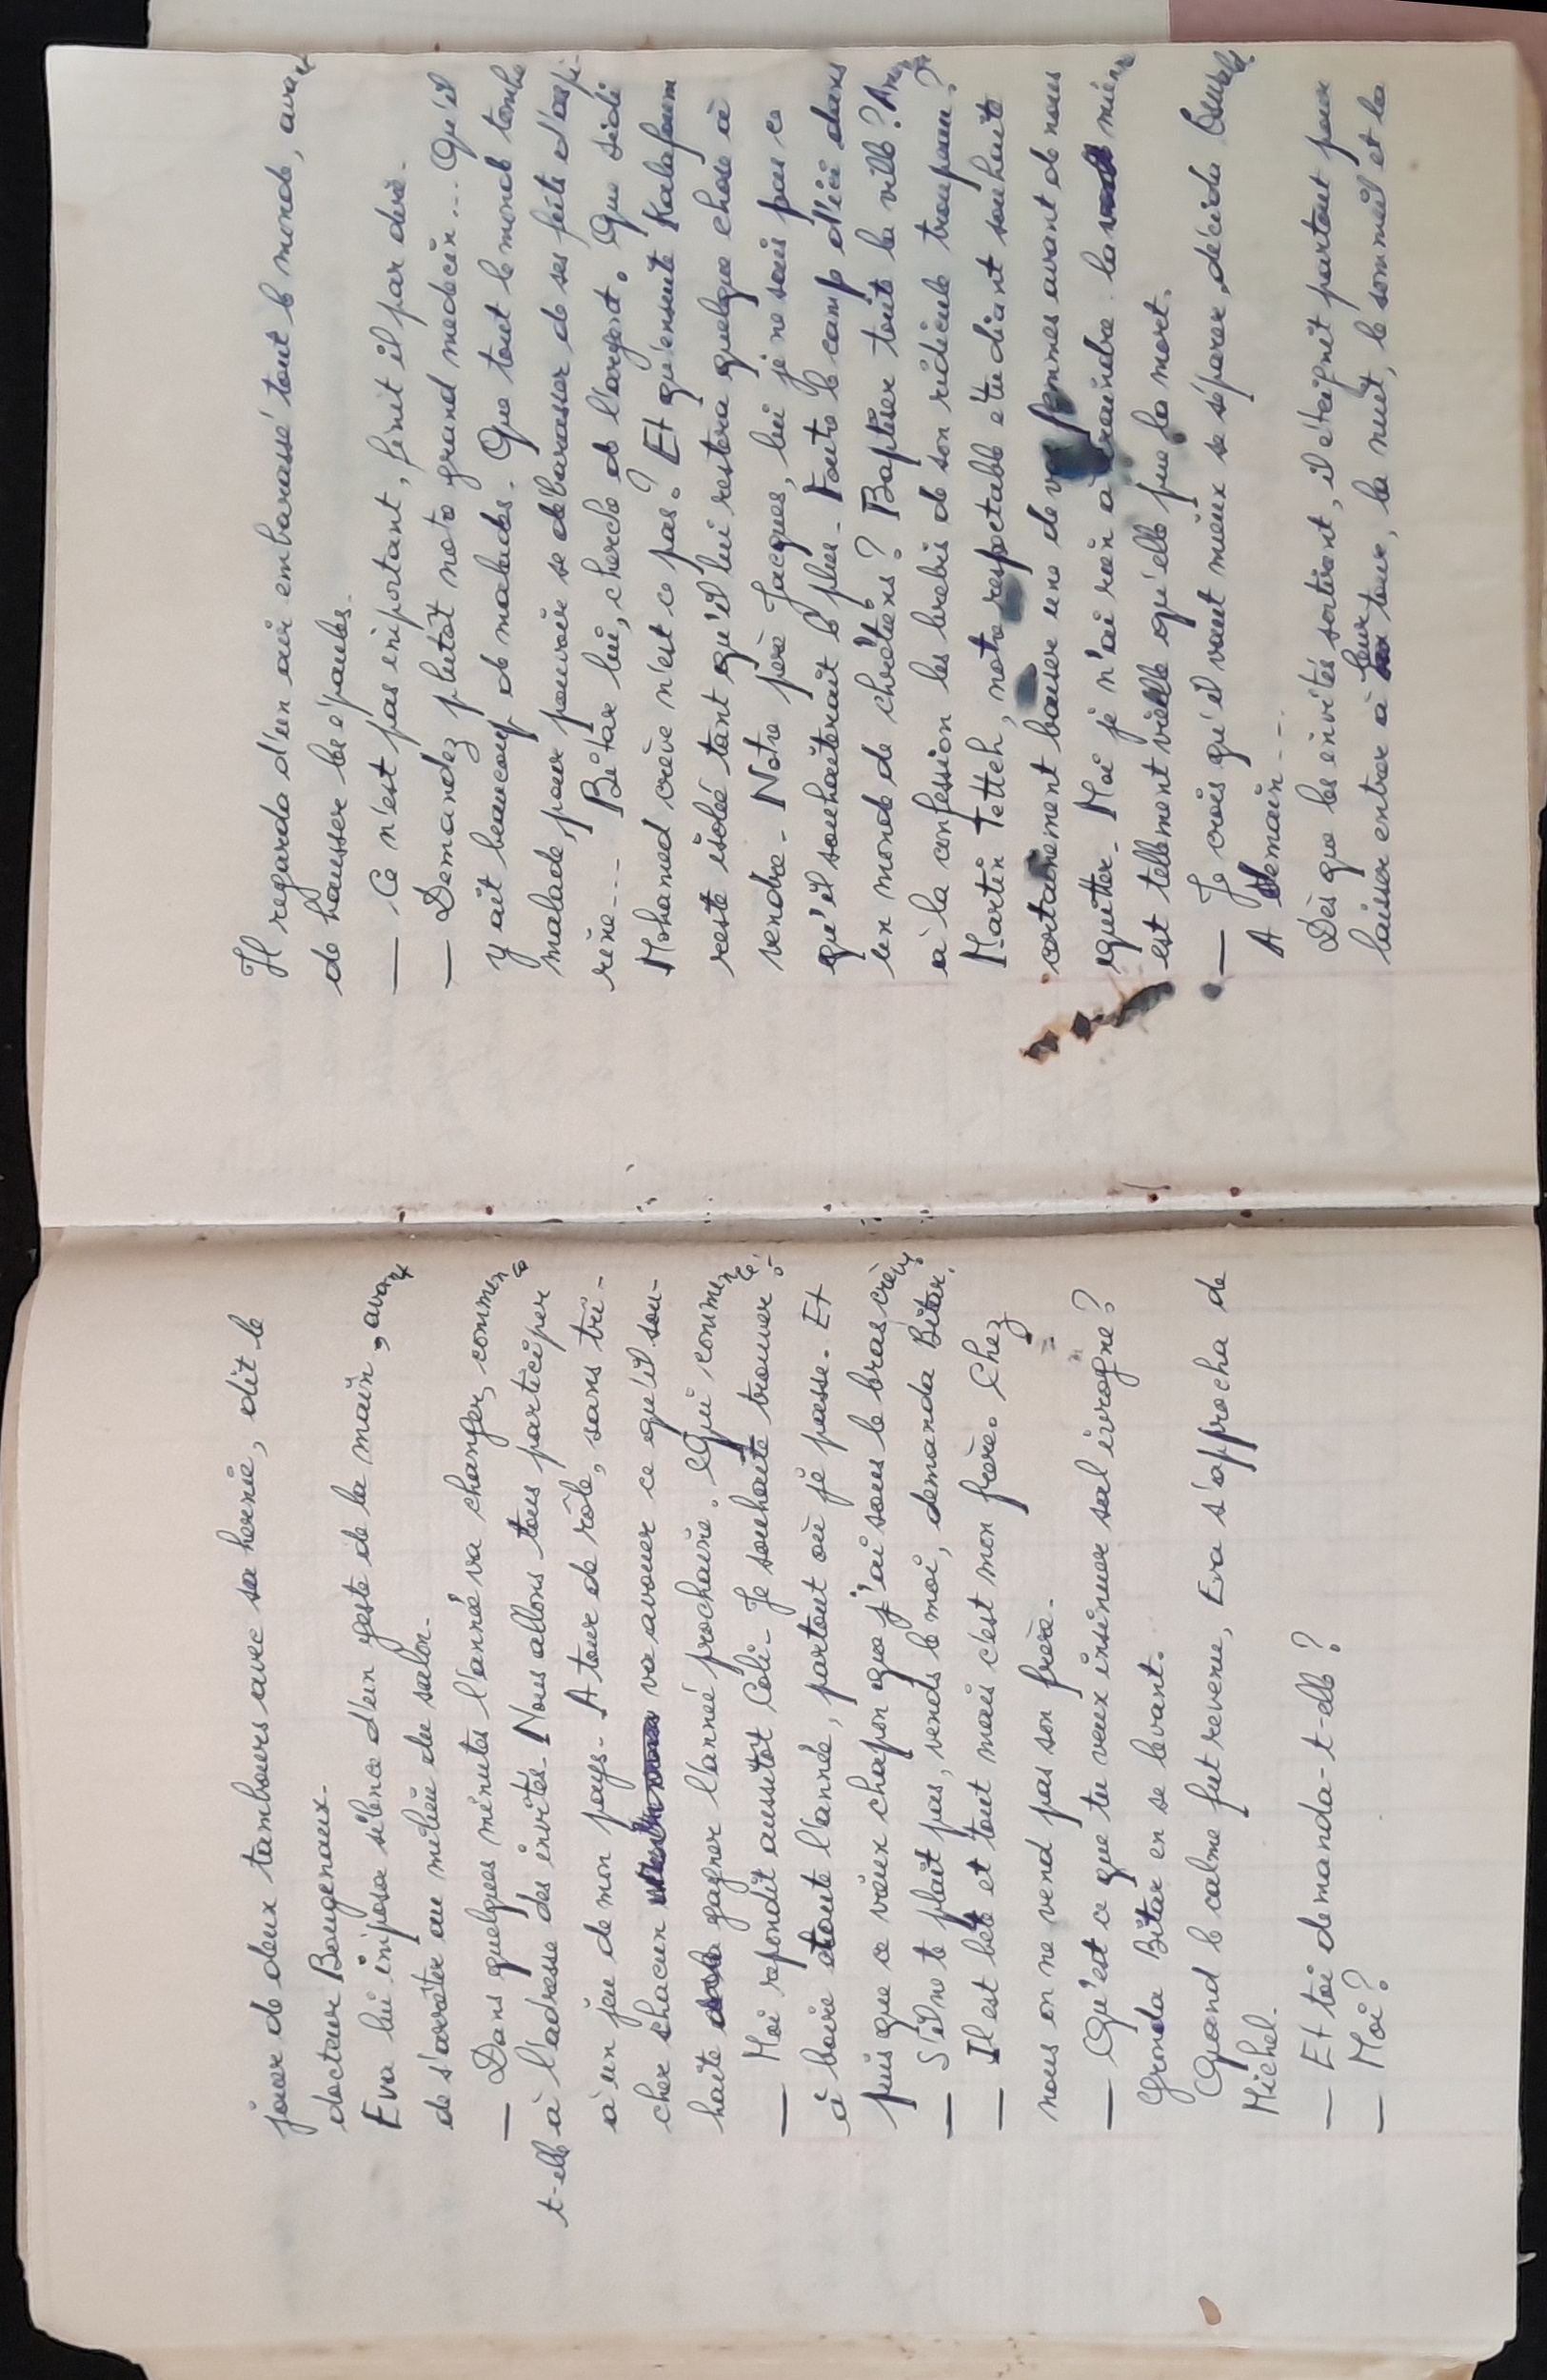 jouer de deux tambours avec sa hernie, dit le
docteur Bougenaux.
Eva lui imposa silence d'un geste de la main, avant
de s'arrêter au milieu du salon.
— Dans quelques minutes l'année va changer, commença
t-elle à l'adresse des invités. Nous allons tous participer
à un jeu de mon pays. A tour de rôle, sans tri-
cher chacun va avouer ce qu'il sou-
haite gagner l'année prochaine. Qui commence?
— Moi repondit aussitot Coli. Je souhaite trouver
à boire toute l'année, partout où je passe. Et
puis que ce vieux chapon que j'ai sous le bras crève.
— S'il ne te plait pas, vends le moi, demanda Bitar.
— Il est bête et tout mais c'est mon frère. Chez
nous on ne vend pas son frère.
— Qu'est ce que tu veux insinuer sal ivrogne?
Gronda Bitar en se levant.
Quand le calme fut revenu, Eva s'approcha de
Michel.
— Et toi demanda-t-elle?
— Moi?
Il regarda d'un air embarassé tout le monde, avant
de hausser les épaules.
— Ce n'est pas important, finit il par dire.
— Demandez plutôt notre grand medecin... Qu'il
y ait beaucoup de malades. Que tout le monde tombe
malade, pour pouvoir se débarasser de ses feits d'aspi-
rine... Bitar lui, cherche de l'argent. Que Sidi
Mohamed crève n'est ce pas? Et qu'ensuite Kalafoum
reste isoleé tant qu'il lui restera quelque chose à
vendre. Notre père Jacques, lui je ne sais pas ce
qu'il souhaiterait le plus. Foutre le camp d'ici dans
un monde de chrétiens? Baptiser toute la ville? Amener
à la confession les brebis de son ridicule troupeau?
Martin Tetteh, notre respectable étudiant souhaite
certainement baiser une de vos femmes avant de nous
quitter. Moi je n'ai rien à craindre. la mienne
est tellement vieille qu'elle pue la mort.
— Je crois qu'il vaut mieux se séparer, décida
A demain...
Dès que les invités sortirent, il éteignit partout pour
laisser entrer à leur tour, la nuit, le sommeil et la